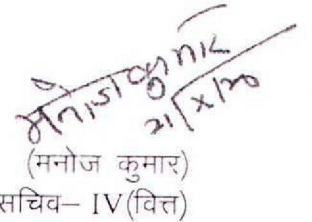 मनोज कुमार
21/X/20
(मनोज कुमार)
सचिव– IV(वित्त)